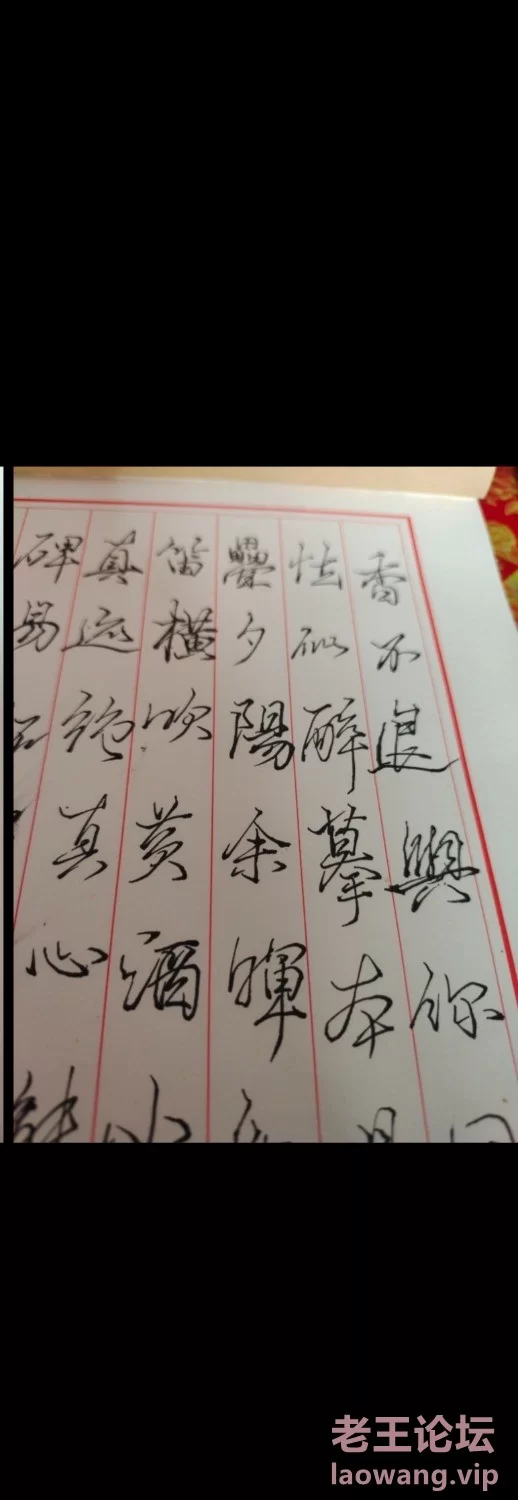 香不退與你
怯似醉摹本
疊夕陽余暉
笛橫吹黃酒
真迹絕真心
碑易
老王论坛
laowang.vip